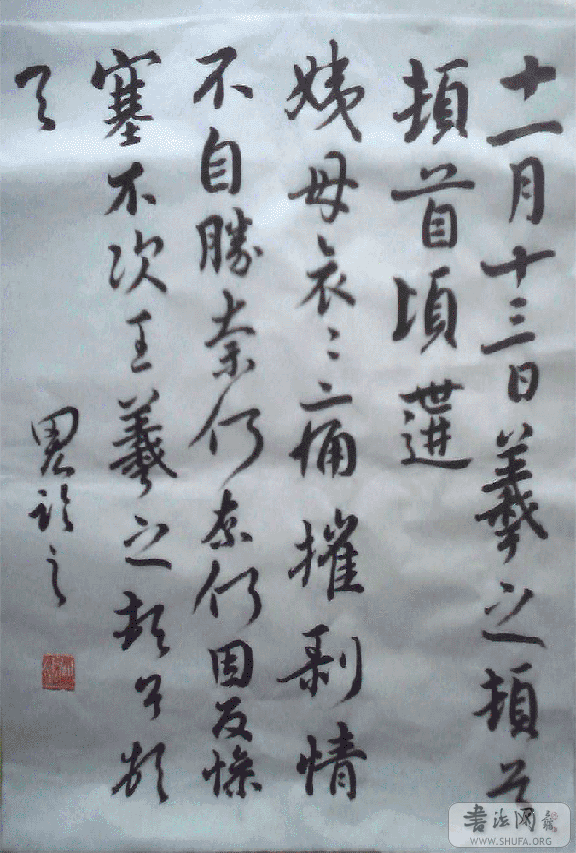 十一月十三日羲之頓首
頓首頃
姨母哀〻痛摧剝情
不自勝奈何奈何因反慘
塞不次王羲之頓首頓
首
書法网
WWW.SHUFA.ORG